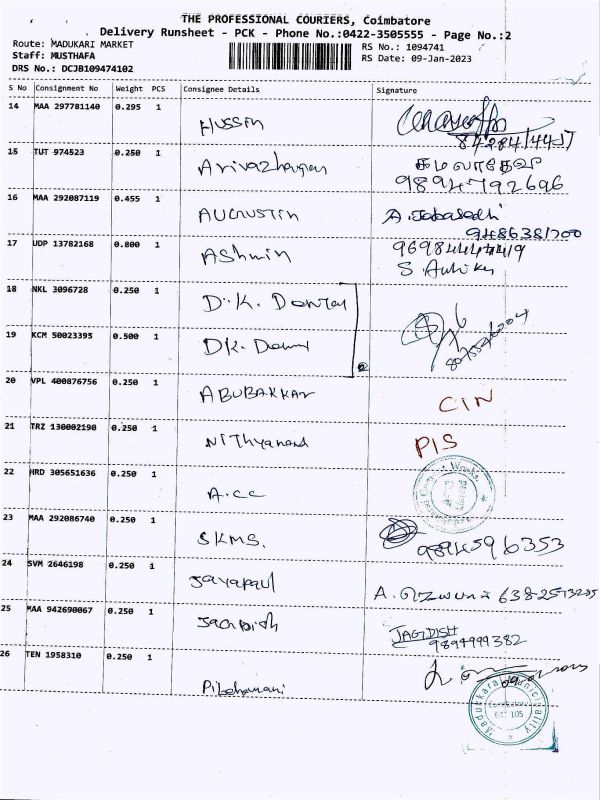 THE PROFESSIONAL COURIERS, Coimbatore
Delivery Runsheet - PCK - Phone No.:0422-3505555 - Page No.:2
Route: MADUKARI MARKET
Staff: MUSTHAFA
DRS No.: DCJB109474102
RS No.: 1094741
RS Date: 09-Jan-2023
S No Consignment No Weight PCS Consignee Details Signature
14 MAA 297781140 0.295 1 Hussin
15 TUT 974523 0.250 1 Arivazhagan கமலாதேவி
9894792696
16 MAA 292087119 0.455 1 Augustin A. Jabasedhi
9486381700
17 UDP 13782168 0.800 1 Ashwin 9698444749
18 NKL 3096728 0.250 1 D.K.
19 KCM 50023395 0.500 1 DK.
20 VPL 400876756 0.250 1 ABUBAKKAR CIN
21 TRZ 130002190 0.250 1 Nithyanand PIS
22 HRD 305651636 0.250 1 A.CC
23 MAA 292086740 0.250 1 SKMS. 9894596353
24 SVM 2646198 0.250 1 Jayapaul A.
25 MAA 942690067 0.250 1 Jagdish JAGDISH
9894999382
26 TEN 1958310 0.250 1
Madukkarai Municipality
Coimbatore
641 105